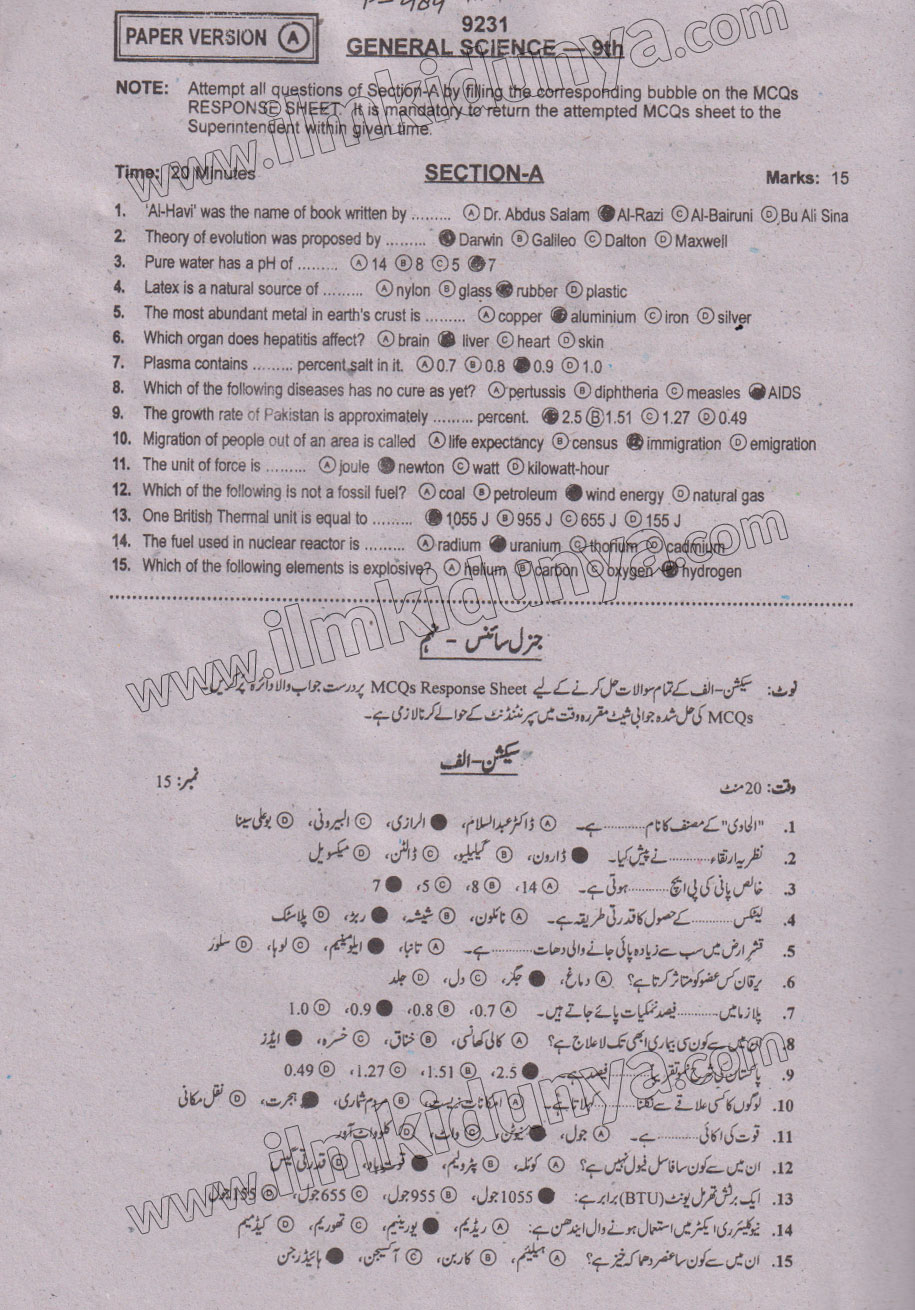 P-484
PAPER VERSION Ⓐ
9231
GENERAL SCIENCE — 9th
NOTE: Attempt all questions of Section-A by filling the corresponding bubble on the MCQs
RESPONSE SHEET. It is mandatory to return the attempted MCQs sheet to the
Superintendent within given time.
Time: 20 Minutes SECTION-A Marks: 15
1. 'Al-Havi' was the name of book written by ......... Ⓐ Dr. Abdus Salam ● Al-Razi Ⓒ Al-Bairuni Ⓓ Bu Ali Sina
2. Theory of evolution was proposed by ......... ● Darwin Ⓑ Galileo Ⓒ Dalton Ⓓ Maxwell
3. Pure water has a pH of ......... Ⓐ 14 Ⓑ 8 Ⓒ 5 ● 7
4. Latex is a natural source of ......... Ⓐ nylon Ⓑ glass ● rubber Ⓓ plastic
5. The most abundant metal in earth's crust is ......... Ⓐ copper ● aluminium Ⓒ iron Ⓓ silver
6. Which organ does hepatitis affect? Ⓐ brain ● liver Ⓒ heart Ⓓ skin
7. Plasma contains ......... percent salt in it. Ⓐ 0.7 Ⓑ 0.8 ● 0.9 Ⓓ 1.0
8. Which of the following diseases has no cure as yet? Ⓐ pertussis Ⓑ diphtheria Ⓒ measles ● AIDS
9. The growth rate of Pakistan is approximately ......... percent. ● 2.5 Ⓑ 1.51 Ⓒ 1.27 Ⓓ 0.49
10. Migration of people out of an area is called Ⓐ life expectancy Ⓑ census ● immigration Ⓓ emigration
11. The unit of force is ......... Ⓐ joule ● newton Ⓒ watt Ⓓ kilowatt-hour
12. Which of the following is not a fossil fuel? Ⓐ coal Ⓑ petroleum ● wind energy Ⓓ natural gas
13. One British Thermal unit is equal to ......... ● 1055 J Ⓑ 955 J Ⓒ 655 J Ⓓ 155 J
14. The fuel used in nuclear reactor is ......... Ⓐ radium ● uranium Ⓒ thorium Ⓓ cadmium
15. Which of the following elements is explosive? Ⓐ helium Ⓑ carbon Ⓒ oxygen ● hydrogen
جنرل سائنس - نہم
نوٹ: سیکشن-الف کے تمام سوالات حل کرنے کے لیے MCQs Response Sheet پر درست جواب والا دائرہ پر کریں۔
MCQs کی حل شدہ جوابی شیٹ مقررہ وقت میں سپرنٹنڈنٹ کے حوالے کرنا لازمی ہے۔
سیکشن-الف
وقت: 20 منٹ نمبر: 15
1. "الحاوی" کے مصنف کا نام ......... ہے۔ Ⓐ ڈاکٹر عبدالسلام، ● الرازی، Ⓒ البیرونی، Ⓓ بو علی سینا
2. نظریہ ارتقاء ......... نے پیش کیا۔ ● ڈارون، Ⓑ گیلیلیو، Ⓒ ڈالٹن، Ⓓ میکسویل
3. خالص پانی کی پی ایچ ......... ہوتی ہے۔ Ⓐ 14، Ⓑ 8، Ⓒ 5، ● 7
4. لیٹکس ......... کے حصول کا قدرتی طریقہ ہے۔ Ⓐ نائلون، Ⓑ شیشہ، ● ربڑ، Ⓓ پلاسٹک
5. قشر ارض میں سب سے زیادہ پائی جانے والی دھات ......... ہے۔ Ⓐ تانبا، ● ایلومینیم، Ⓒ لوہا، Ⓓ سلور
6. یرقان کس عضو کو متاثر کرتا ہے؟ Ⓐ دماغ، ● جگر، Ⓒ دل، Ⓓ جلد
7. پلازما میں ......... فیصد نمکیات پائے جاتے ہیں۔ Ⓐ 0.7، Ⓑ 0.8، ● 0.9، Ⓓ 1.0
8. ان میں سے کون سی بیماری ابھی تک لاعلاج ہے؟ Ⓐ کالی کھانسی، Ⓑ خناق، Ⓒ خسرہ، ● ایڈز
9. پاکستان کی شرح نمو تقریباً ......... فیصد ہے۔ ● 2.5، Ⓑ 1.51، Ⓒ 1.27، Ⓓ 0.49
10. لوگوں کا کسی علاقے سے نکلنا ......... کہلاتا ہے۔ Ⓐ امکانات زیست، Ⓑ مردم شماری، ● ہجرت، Ⓓ نقل مکانی
11. قوت کی اکائی ......... ہے۔ Ⓐ جول، ● نیوٹن، Ⓒ واٹ، Ⓓ کلوواٹ آور
12. ان میں سے کون سا فاسل فیول نہیں ہے؟ Ⓐ کوئلہ، Ⓑ پٹرولیم، ● قوت باد، Ⓓ قدرتی گیس
13. ایک برٹش تھرمل یونٹ (BTU) برابر ہے: ● 1055 جول، Ⓑ 955 جول، Ⓒ 655 جول، Ⓓ 155 جول
14. نیوکلیئر ری ایکٹر میں استعمال ہونے والا ایندھن ہے: Ⓐ ریڈیم، ● یورینیم، Ⓒ تھوریم، Ⓓ کیڈمیم
15. ان میں سے کون سا عنصر دھماکہ خیز ہے؟ Ⓐ ہیلیئم، Ⓑ کاربن، Ⓒ آکسیجن، ● ہائیڈرجن
www.ilmkidunya.com
www.ilmkidunya.com
www.ilmkidunya.com